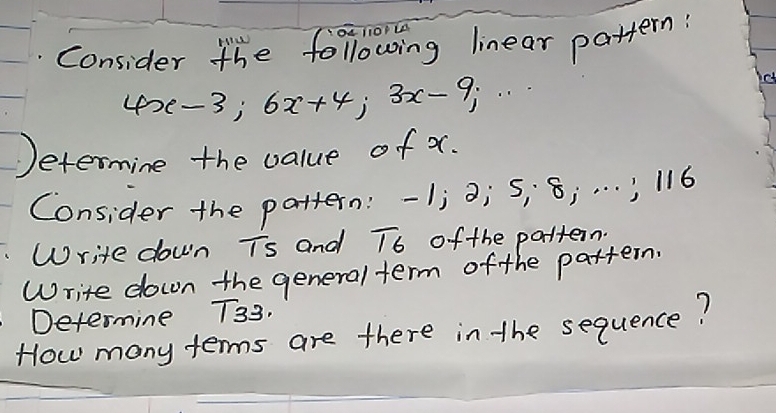 Consider the following linear pattern:
4x-3; 6x+4; 3x-9; ...
Determine the value of x.
Consider the pattern: -1; 2; 5; 8; ...; 116
Write down T5 and T6 of the pattern.
Write down the general term of the pattern.
Determine T33.
How many terms are there in the sequence?